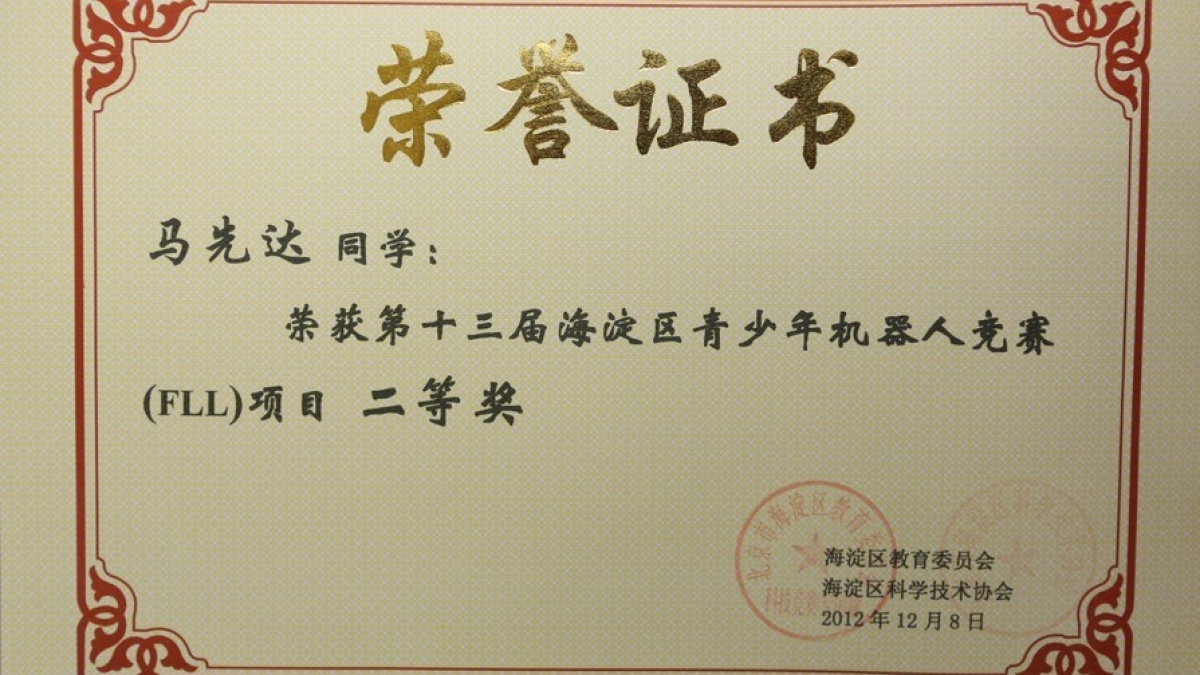 荣誉证书
马先达 同学：
荣获第十三届海淀区青少年机器人竞赛
(FLL)项目 二等奖
北京市海淀区教育委
海淀区教育委员会
海淀区科学技术协会
2012年12月8日